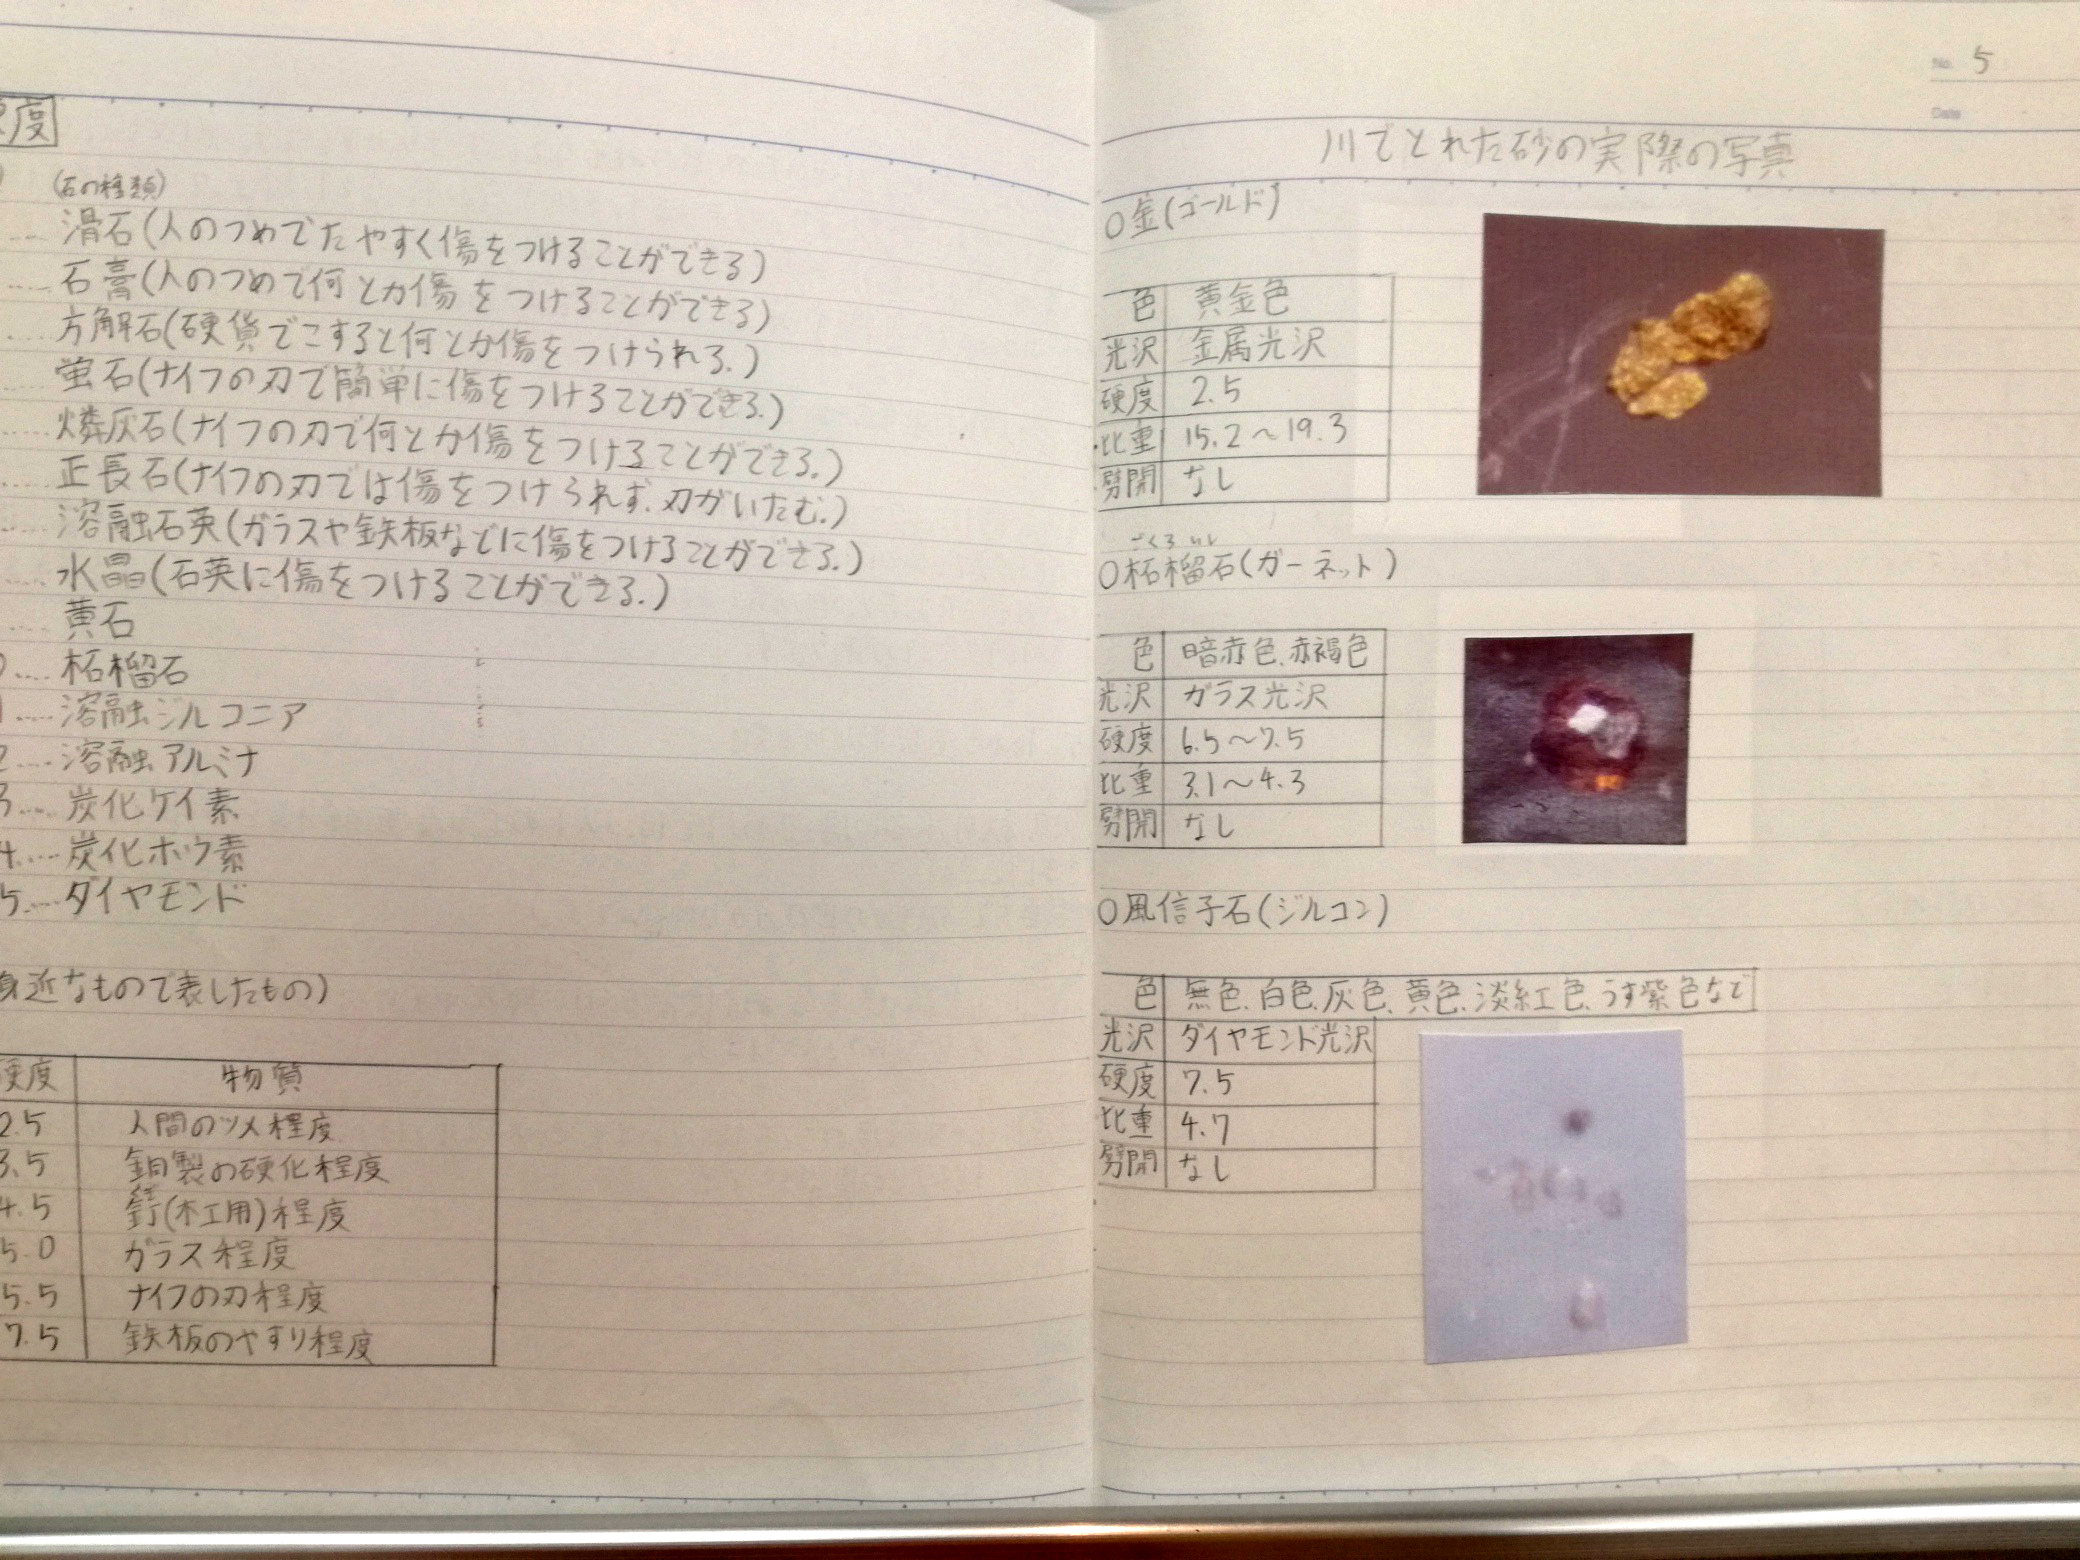 硬度
(石の種類)
.... 滑石(人のつめでたやすく傷をつけることができる)
.... 石膏(人のつめで何とか傷をつけることができる)
.... 方解石(硬貨でこすると何とか傷をつけられる.)
.... 蛍石(ナイフの刃で簡単に傷をつけることができる.)
.... 燐灰石(ナイフの刃で何とか傷をつけることができる.)
.... 正長石(ナイフの刃では傷をつけられず.刃がいたむ.)
.... 溶融石英(ガラスや鉄板などに傷をつけることができる.)
.... 水晶(石英に傷をつけることができる.)
.... 黄石
0.... 柘榴石
1.... 溶融ジルコニア
2.... 溶融アルミナ
3.... 炭化ケイ素
4.... 炭化ホウ素
5.... ダイヤモンド
身近なもので表したもの)
硬度 物質
2.5 人間のツメ程度
3.5 銅製の硬化程度
4.5 釘(木工用)程度
5.0 ガラス程度
5.5 ナイフの刃程度
7.5 鉄板のやすり程度
No. 5
Date
川でとれた砂の実際の写真
○金(ゴールド)
色 黄金色
光沢 金属光沢
硬度 2.5
比重 15.2〜19.3
劈開 なし
ざくろいし
○柘榴石(ガーネット)
色 暗赤色.赤褐色
光沢 ガラス光沢
硬度 6.5〜7.5
比重 3.1〜4.3
劈開 なし
○風信子石(ジルコン)
色 無色.白色.灰色.黄色.淡紅色.うす紫色など
光沢 ダイヤモンド光沢
硬度 7.5
比重 4.7
劈開 なし